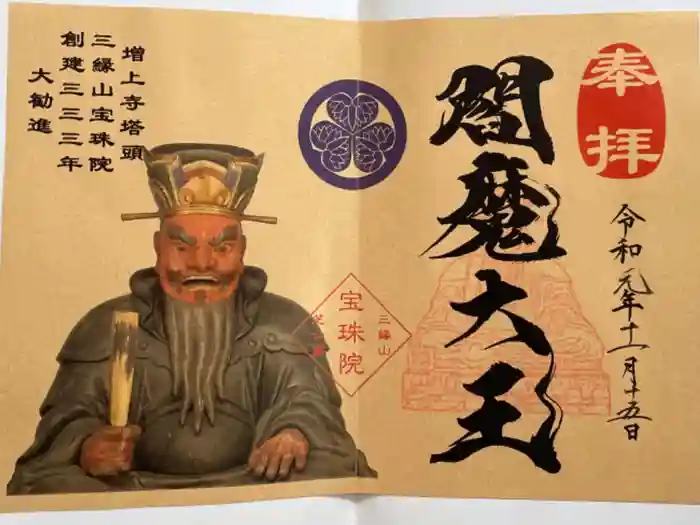 奉拝
閻魔大王
令和元年十一月十五日
増上寺塔頭
三縁山宝珠院
創建三三三年
大勧進
三縁山
宝珠院